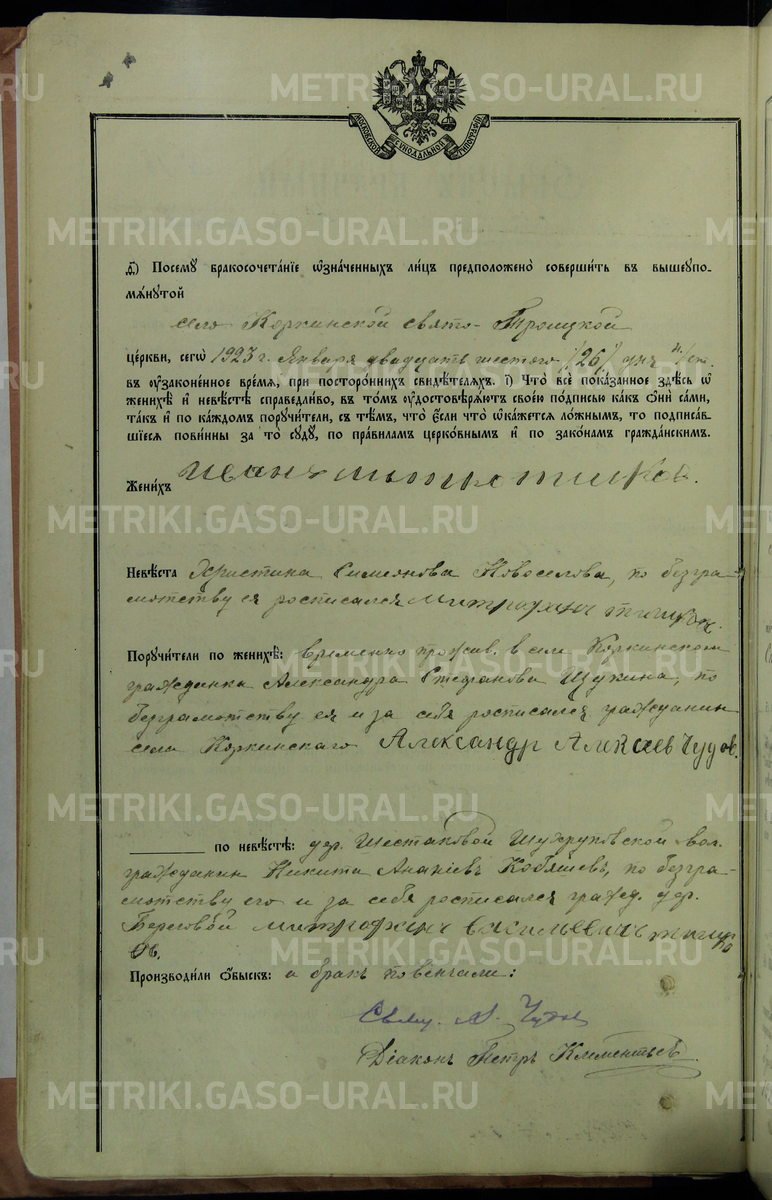 МОСКОВСКОЙ СѴНОДАЛЬНОЙ ТИПОГРАФІИ
ѳ҃) Посемꙋ бракосочета́нїе ѡ҆зна́ченныхъ ли́цъ предположено̀ соверши́ть въ вышеꙋпо-
мѧ́нꙋтой
село Коркинской свято-Троицкой
це́ркви, сегѡ̀ 1923 г. Января двадцать шестого /26/ дня н./ст.
въ ᲂу҆зако́ненное вре́мѧ, при посторо́ннихъ свидѣ́телѧхъ. і҃) Что̀ всѐ пока́занное здѣ́сь ѡ҆
женихѣ̀ и҆ невѣ́стѣ справедли́во, въ то́мъ ᲂу҆достовѣрѧ́ютъ свое́ю по́дписью ка́къ ѻ҆нѝ са́ми,
та́къ и҆ по ка́ждомъ порꙋчи́тели, съ тѣ́мъ, что̀ є҆́сли что̀ ѡ҆ка́жетсѧ ло́жнымъ, то подписа́в-
шїесѧ пови́нны за то̀ сꙋдꙋ̀, по пра́виламъ церко́внымъ и҆ по зако́намъ гражда́нскимъ.
Жени́хъ Иванъ
Невѣ́ста Христина Симеонова Новоселова, по безгра-
мотству ея росписался Митрофанъ
Порꙋчи́тели по женихѣ̀: временно прожив. в селе Коркинском
гражданка Александра Стефанова Щукина, по
безграмотству ея и за себя росписался гражданин
села Коркинскаго Александр Алексеев Чудов.
по невѣ́стѣ: дер. Шестаковой вол.
гражданин Никита Ананіевъ Кобяшев, по безгра-
мотству его и за себя росписался гражд. дер.
Береговой Митрофанъ Васильевичъ
ов.
Производи́ли ѻ҆́быскъ: а бракъ повенчали:
Свящ. А. Чудов
Діаконъ Петръ Клементьев
METRIKI.GASO-URAL.RU